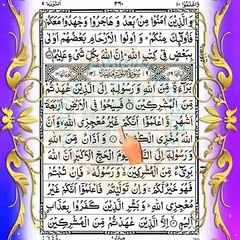 وَالَّذِيْنَ اٰمَنُوْا مِنْۢ بَعْدُ وَهَاجَرُوْا وَجٰهَدُوْا مَعَكُمْ
فَاُولٰٓئِكَ مِنْكُمْ ؕ وَاُولُوا الْاَرْحَامِ بَعْضُهُمْ اَوْلٰى
بِبَعْضٍ فِيْ كِتٰبِ اللّٰهِ ؕ اِنَّ اللّٰهَ بِكُلِّ شَيْءٍ عَلِيْمٌ
بَرَآءَةٌ مِّنَ اللّٰهِ وَرَسُوْلِهٖٓ اِلَى الَّذِيْنَ عٰهَدْتُّمْ
مِّنَ الْمُشْرِكِيْنَ ؕ فَسِيْحُوْا فِي الْاَرْضِ اَرْبَعَةَ
اَشْهُرٍ وَّاعْلَمُوْٓا اَنَّكُمْ غَيْرُ مُعْجِزِي اللّٰهِ ۙ وَاَنَّ
اللّٰهَ مُخْزِي الْكٰفِرِيْنَ وَاَذَانٌ مِّنَ اللّٰهِ
وَرَسُوْلِهٖٓ اِلَى النَّاسِ يَوْمَ الْحَجِّ الْاَكْبَرِ اَنَّ اللّٰهَ
بَرِيْٓءٌ مِّنَ الْمُشْرِكِيْنَ ۙ وَرَسُوْلُهٗ ؕ فَاِنْ تُبْتُمْ
فَهُوَ خَيْرٌ لَّكُمْ ۚ وَاِنْ تَوَلَّيْتُمْ فَاعْلَمُوْٓا اَنَّكُمْ غَيْرُ
مُعْجِزِي اللّٰهِ ؕ وَبَشِّرِ الَّذِيْنَ كَفَرُوْا بِعَذَابٍ
اَلِيْمٍ اِلَّا الَّذِيْنَ عٰهَدْتُّمْ مِّنَ الْمُشْرِكِيْنَ